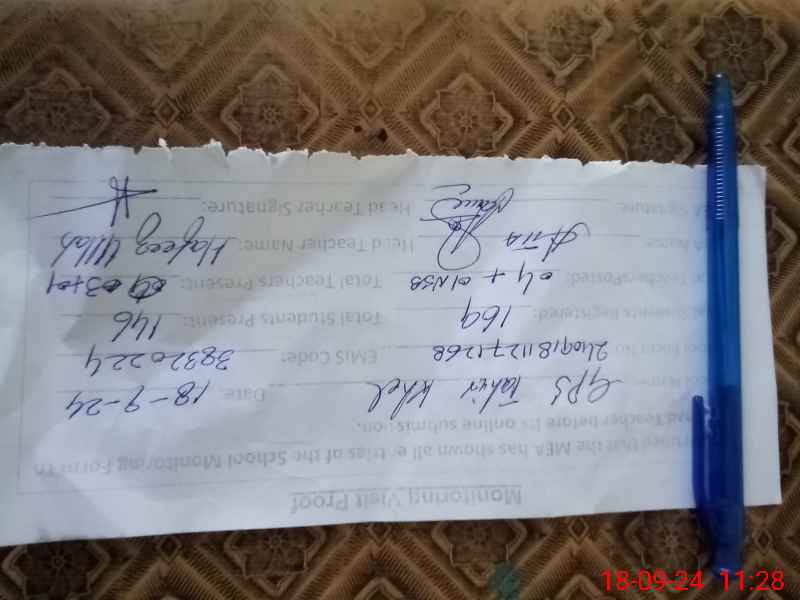 Monitoring Visit Proof
that the MEA has shown all entries of the School Monitoring Form to
ead Teacher before its online submission.
GPS Tahir Khel Date: 18-9-24
EMIS Code: 38320224
Students Registered: 169 Total Students Present: 146
Teachers Posted: 04 + 01 NSB Total Teachers Present: 03+01
Name: Head Teacher Name: Hafeez Ullah
A Signature: Head Teacher Signature:
18-09-24 11:28